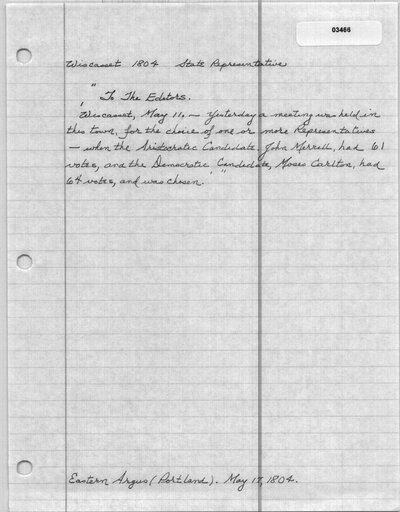 03466
Wiscasset 1804 State Representative
" To The Editors.
Wiscasset, May 11, — Yesterday a meeting was held in
this town, for the choice of one or more Representatives
— when the Aristocratic Candidate, John Merrill, had 61
votes, and the Democratic Candidate, Moses Carlton, had
64 votes, and was chosen."
Eastern Argus (Portland). May 17, 1804.